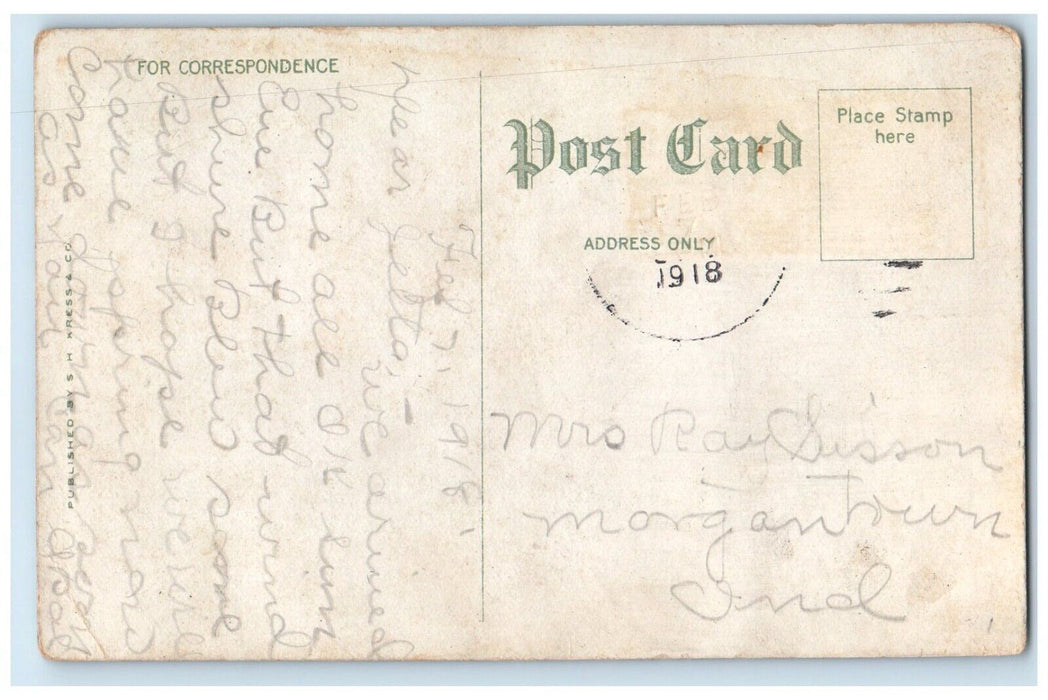 FOR CORRESPONDENCE
Feb 7, 1918
Dear Zetta, we arrived
home all OK Sun
Eve But that wind
shure blew some
But I hope we will
have spring now
Come
as you can
PUBLISHED BY S. H. KRESS & CO.
Post Card
Place Stamp
here
FEB
ADDRESS ONLY
1918
Mrs Ray Sisson
Morgantown
Ind